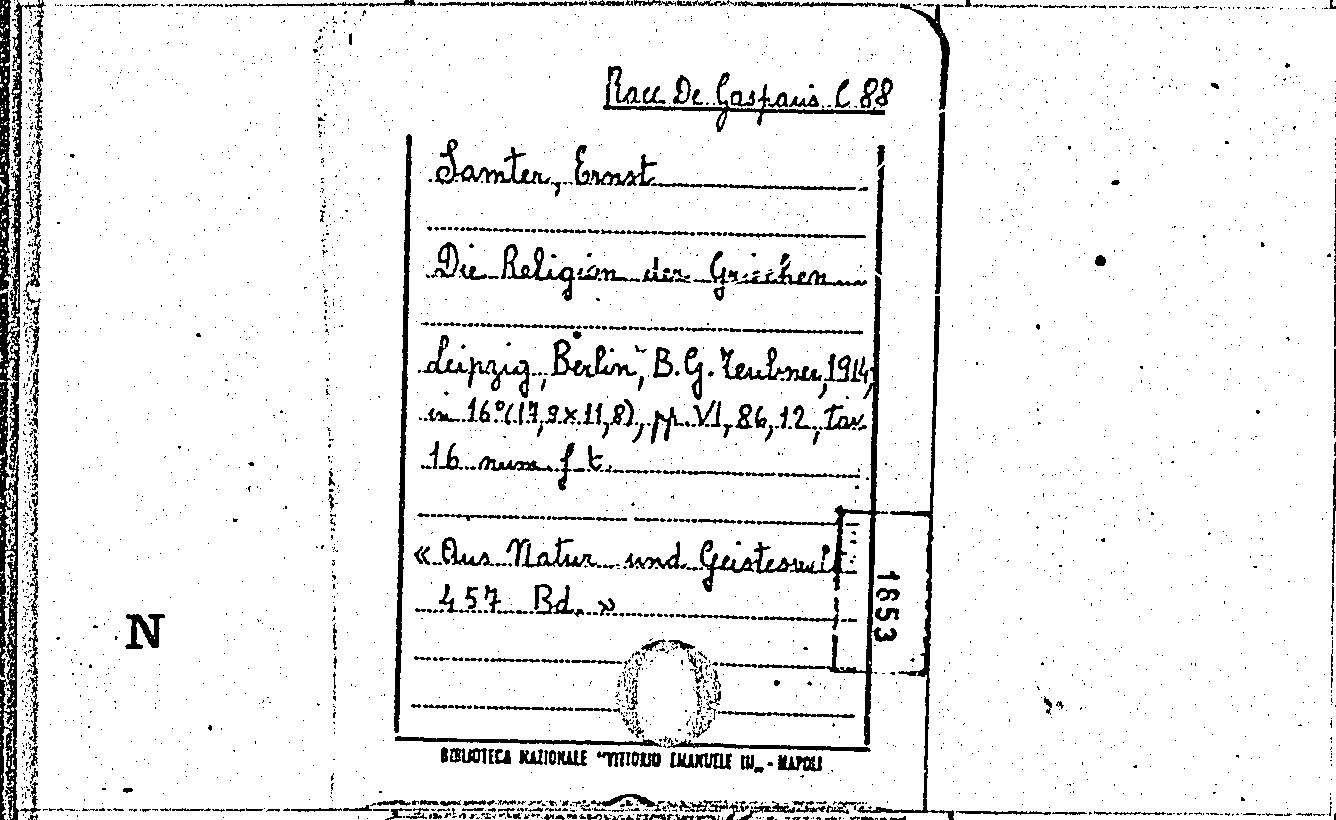 Racc De Gasparis C 88
Samter, Ernst
Die Religion der Griechen
Leipzig, Berlin, B.G. Teubner, 1914,
in 16° (17,9x11,8), pp. VI, 86, 12, tav.
16 num. f. t.
« Aus Natur und Geisteswelt
457 Bd. »
1853
N
BIBLIOTECA NAZIONALE "VITTORIO EMANUELE III„ - NAPOLI